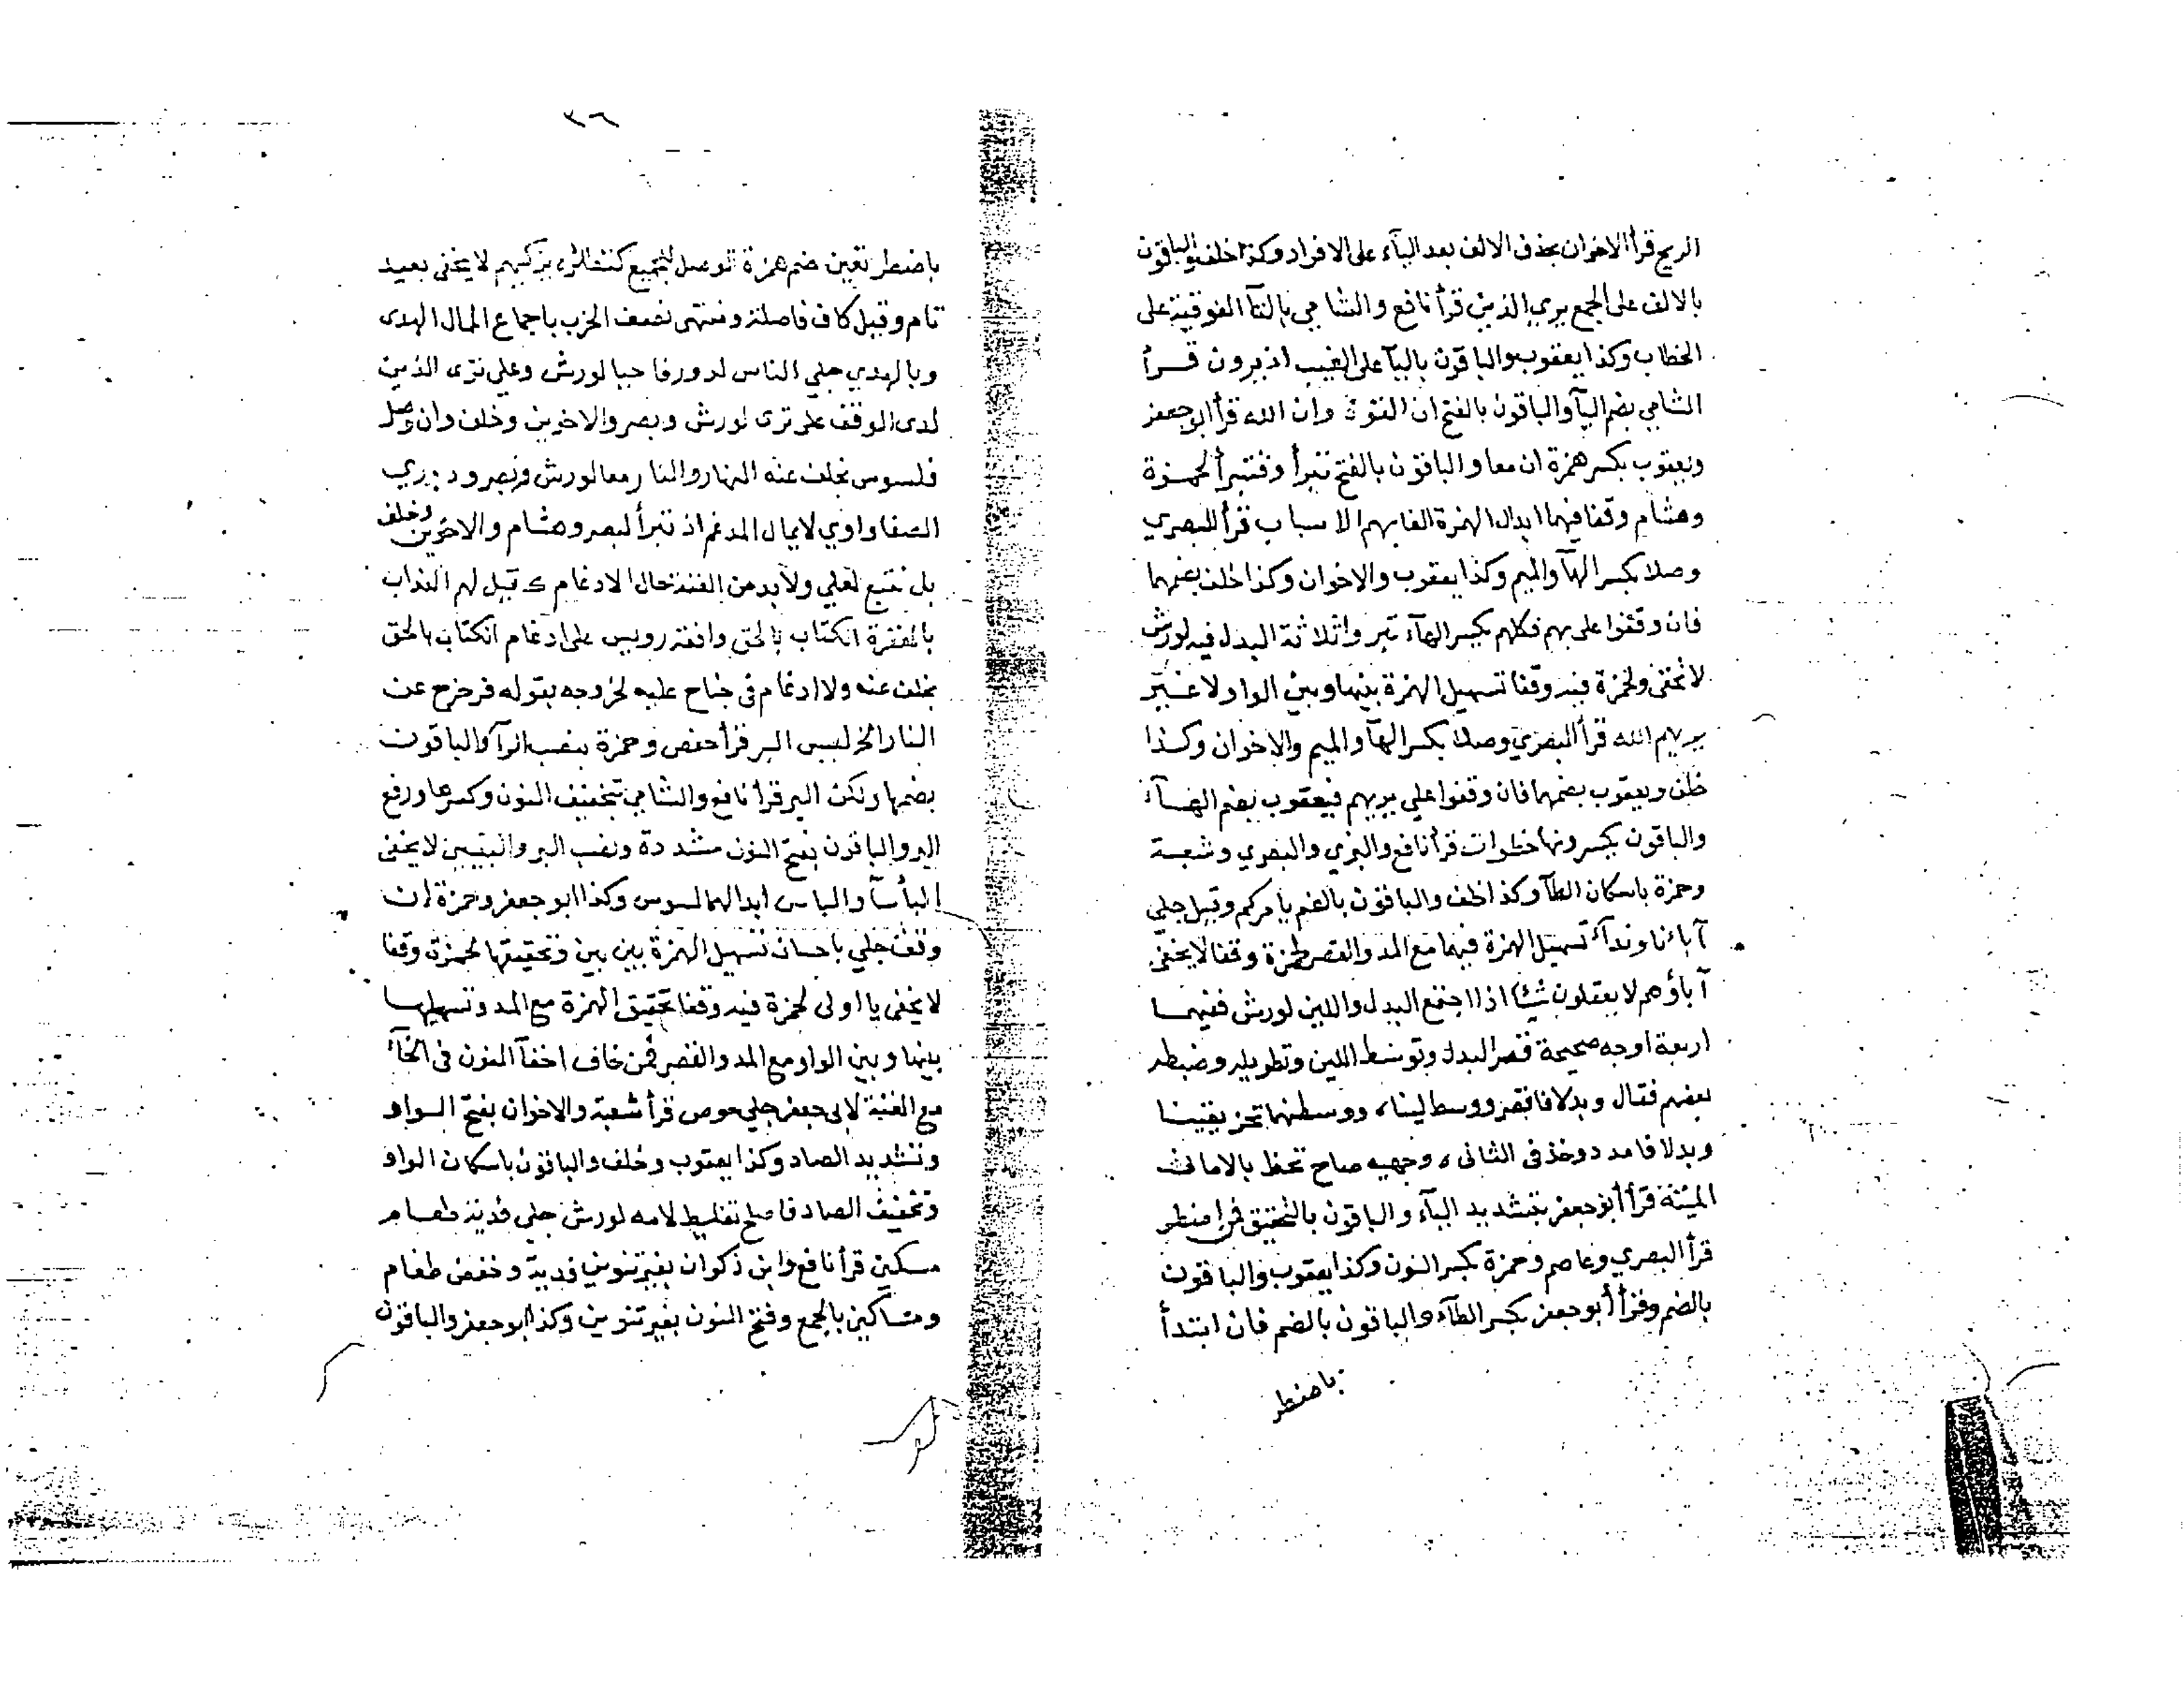 الريح قرأ الاخوان بحذف الالف بعد اليآء على الافراد وكذا خلف والباقون
بالالف على الجمع يري الذين قرأ نافع والشامي بالتآ الفوقية على
الخطاب وكذا يعقوب والباقون باليآ على الغيب اذ يرون قــرأ
الشامي بضم اليآ والباقون بالفتح ان القوة وان الله قرأ ابو جعفر
ويعقوب بكسر همزة ان معا والباقون بالفتح تبرأ وفنتبرأ لحمــزة
وهشام وقفا فيهما ابدال الهمزة الفا بهم الاسباب قرأ البصري
وصلا بكسر الهآ والميم وكذا يعقوب والاخوان وكذا خلف بضمهما
فان وقفوا على بهم فكلهم بكسر الهآء تبرؤا ثلاثة البدل فيه لورش
لا تخفى ولحمزة فيه وقفا تسهيل الهمزة بينها وبين الواو لا غــير
يريهم الله قرأ البصري وصلا بكسر الهآ والميم والاخوان وكــذا
خلف ويعقوب بضمهما فان وقفوا علي يريهم فيعقوب بضم الهــآء
والباقون بكسرونها خطوات قرأ نافع والبزي والبصري وشعبــة
وحمزة باسكان الطآ وكذا خلف والباقون بالضم يامركم وقيل جلي
آباءنا وندآء تسهيل الهمزة فيهما مع المد والقصر لحمزة وقفا لا يخفى
آباؤهم لا يعقلون شيئا اذا اجتمع البدل واللين لورش ففيهمــا
اربعة اوجه صحيحة قصر البدل وتوسط اللين وتطويله وضبطه
بعضهم فقال وبدلا فاقصر ووسط لينا، ووسطنهما تحز يقينــا
وبدلا فامدد وخذ في الثاني، وجهيه صاح تحظ بالامانى
الميتة قرأ أبو جعفر بتشديد اليآء والباقون بالتخفيف فمن اضطر
قرأ البصري وعاصم وحمزة بكسر النون وكذا يعقوب والباقون
بالضم وقرأ أبو جعفر بكسر الطآء والباقون بالضم فان ابتدأ
باضطر
٢٦
باضطر تعين ضم همزة الوصل للجميع يزكيهم لا يخفى بعيد
تام وقيل كاف فاصلة ومنتهى نصف الحزب باجماع الممال الهدى
وبالهدي جلي الناس لدور فاحيا لورش وعلي ترى الذين
لدى الوقف على ترى لورش وبصر والاخوين وخلف وان وصل
فلسوس بخلف عنه النهار والنار معا لورش وبصر ودوري
الصفا واوي لا يمال المدغم اذ تبرأ لبصر وهشام والاخوين وخلف
بل نتبع لعلي ولا بد من الغنة حال الادغام ك قيل لهم العذاب
بالمغفرة الكتاب بالحق وافقه رويس على ادغام الكتاب بالحق
بخلف عنه ولا ادغام في جناح عليه لخروجه بقوله فزحزح عن
النار الخ ليس البر قرأ حفص وحمزة بنصب الرآ والباقون
بضمها ولكن البر قرأ نافع والشامي بتخفيف النون وكسرها ورفع
البر والباقون بفتح النون مشددة ونصب البر والنبيين لا يخفى
البأسآ والباس ابدالهما لسوس وكذا ابو جعفر وحمزة ان
وقف جلي باحسان تسهيل الهمزة بين بين وتحقيقها لحمزة وقفا
لا يخفى يا اولى لحمزة فيه وقفا تحقيق الهمزة مع المد وتسهيلهــا
بينها وبين الواو مع المد والقصر فمن خاف اخفآ النون في الخآء
مع الغنة لابي جعفر جلي موص قرأ شعبة والاخوان بفتح الــواو
وتشديد الصاد وكذا يعقوب وخلف والباقون باسكان الواو
وتخفيف الصاد فاصلح تغليظ لامه لورش جلي فدية طعــام
مسكين قرأ نافع وابن ذكوان بغير تنوين فدية وخفض طعام
ومساكين بالجمع وفتح النون بغير تنوين وكذا ابو جعفر والباقون